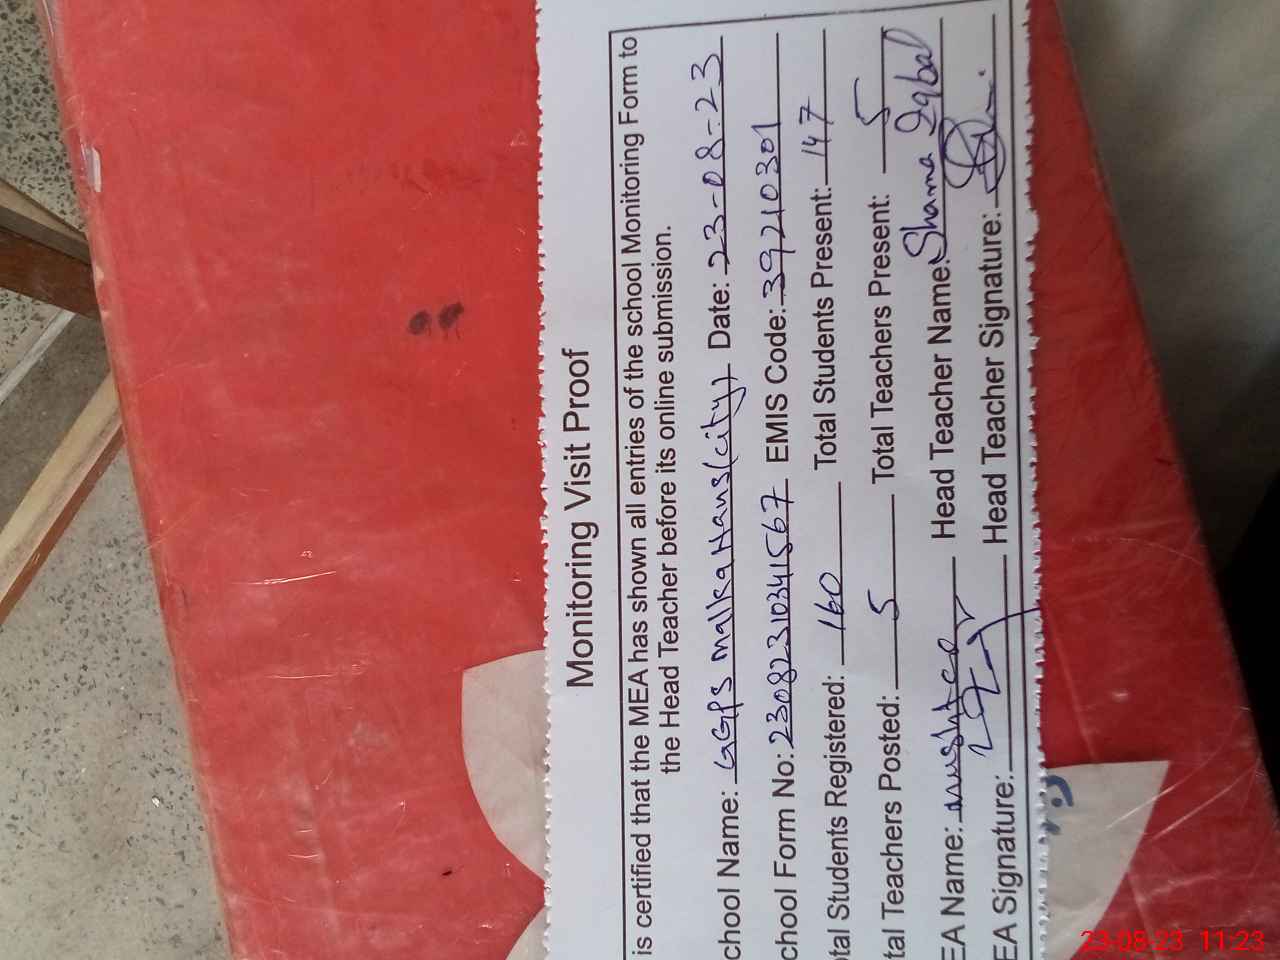 Monitoring Visit Proof
is certified that the MEA has shown all entries of the school Monitoring Form to
the Head Teacher before its online submission.
chool Name: GGPS Malka Hans (city) Date: 23-08-23
chool Form No: 23082310341567 EMIS Code: 39210301
otal Students Registered: 160 Total Students Present: 147
tal Teachers Posted: 5 Total Teachers Present: 5
EA Name: Head Teacher Name: Shama Iqbal
EA Signature: Head Teacher Signature:
23-08-23 11:23